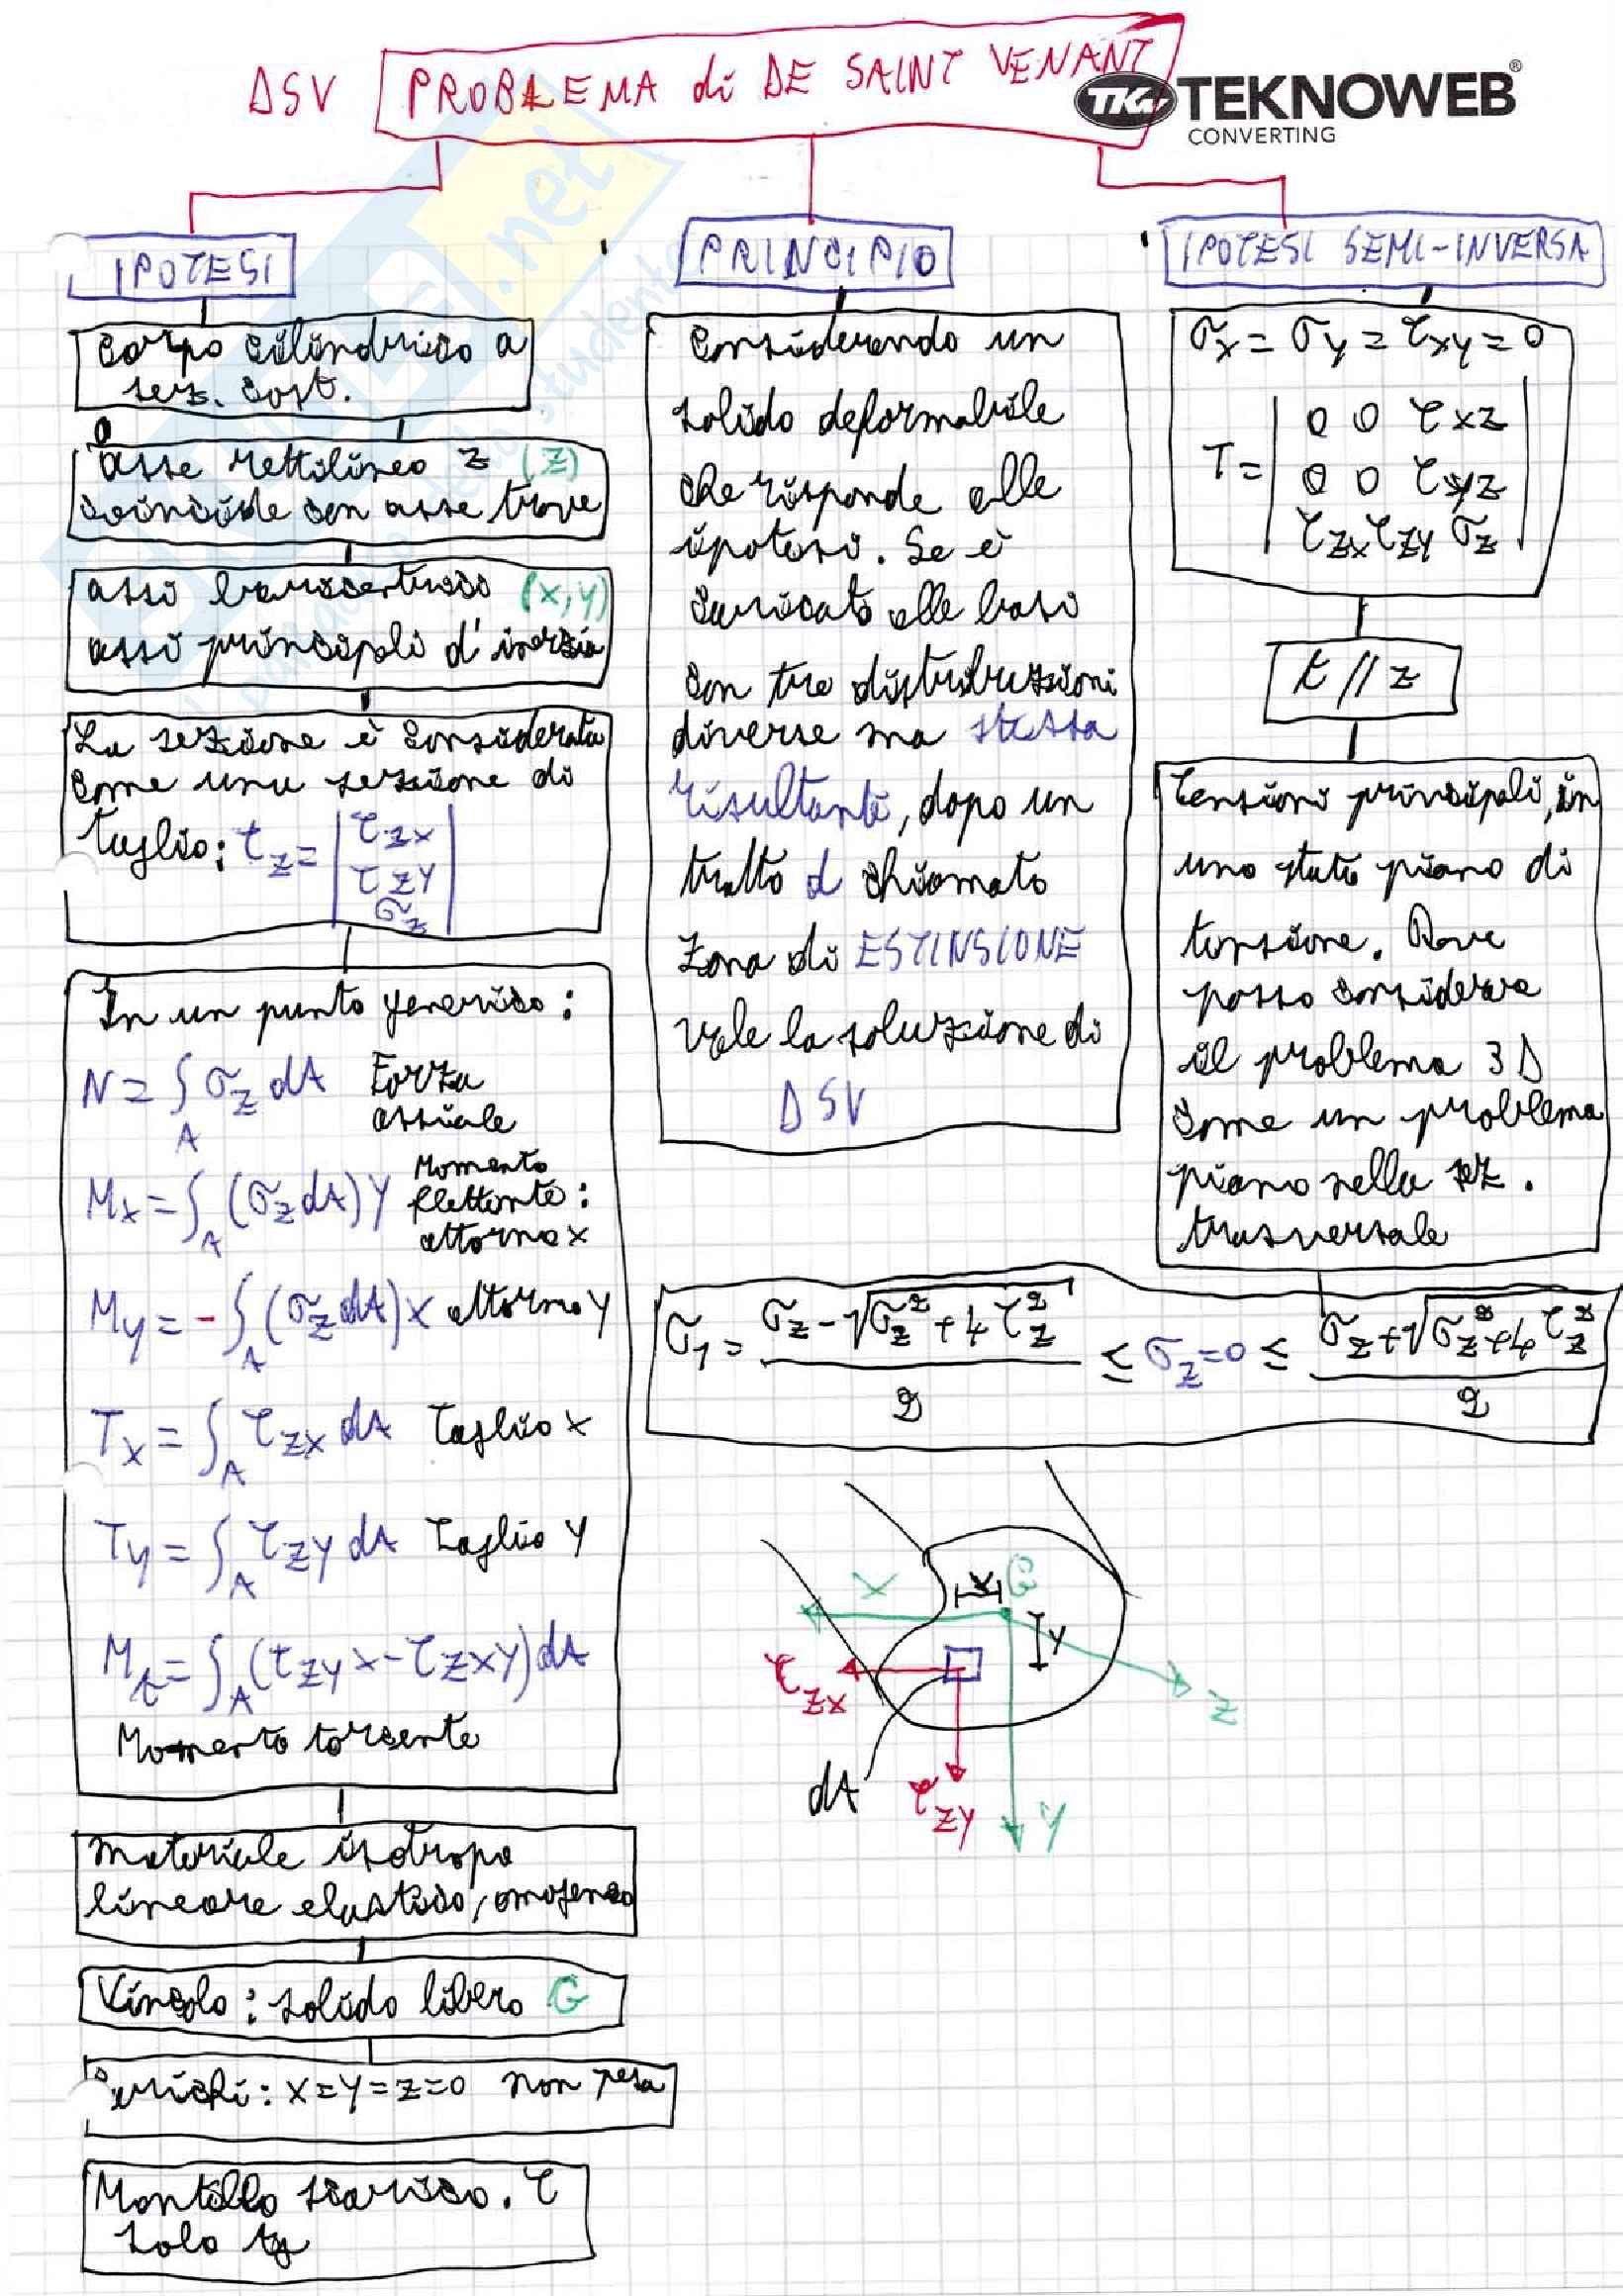 DSV PROBLEMA di DE SAINT VENANT
TKW TEKNOWEB®
CONVERTING
IPOTESI
Corpo cilindrico a
sez. cost.
asse rettilineo z (z)
coincide con asse trave
assi baricentrici (x,y)
assi principali d'inerzia
La sezione è considerata
come una sezione di
taglio: t_z = | τzx
τzy
σz |
In un punto generico:
N = ∫_A σz dA Forza
assiale
Mx = ∫_A (σz dA) y Momento
flettente:
attorno x
My = - ∫_A (σz dA) x attorno y
Tx = ∫_A τzx dA Taglio x
Ty = ∫_A τzy dA Taglio y
Mt = ∫_A (τzy x - τzx y) dA
Momento torcente
materiale isotropo
lineare elastico, omogeneo
Vincolo: solido libero G
Carichi: x=y=z=0 non pesa
Mantello scarico. τ
solo
PRINCIPIO
Considerando un
solido deformabile
che risponde alle
ipotesi. Se è
caricato alle basi
con tre distribuzioni
diverse ma stessa
risultante, dopo un
tratto d chiamato
zona di ESTINSIONE
vale la soluzione di
DSV
IPOTESI SEMI-INVERSA
σx = σy = τxy = 0
T = | 0 0 τxz
0 0 τyz
τzx τzy σz |
t // z
Tensioni principali, in
uno stato piano di
tensione. Dove
posso considerare
il problema 3D
come un problema
piano nella sez.
trasversale
σ1 = (σz - √(σz² + 4τz²)) / 2 ≤ σz = 0 ≤ (σz + √(σz² + 4τz²)) / 2
x
x G
y
τzx
z
dA
τzy
y
.net